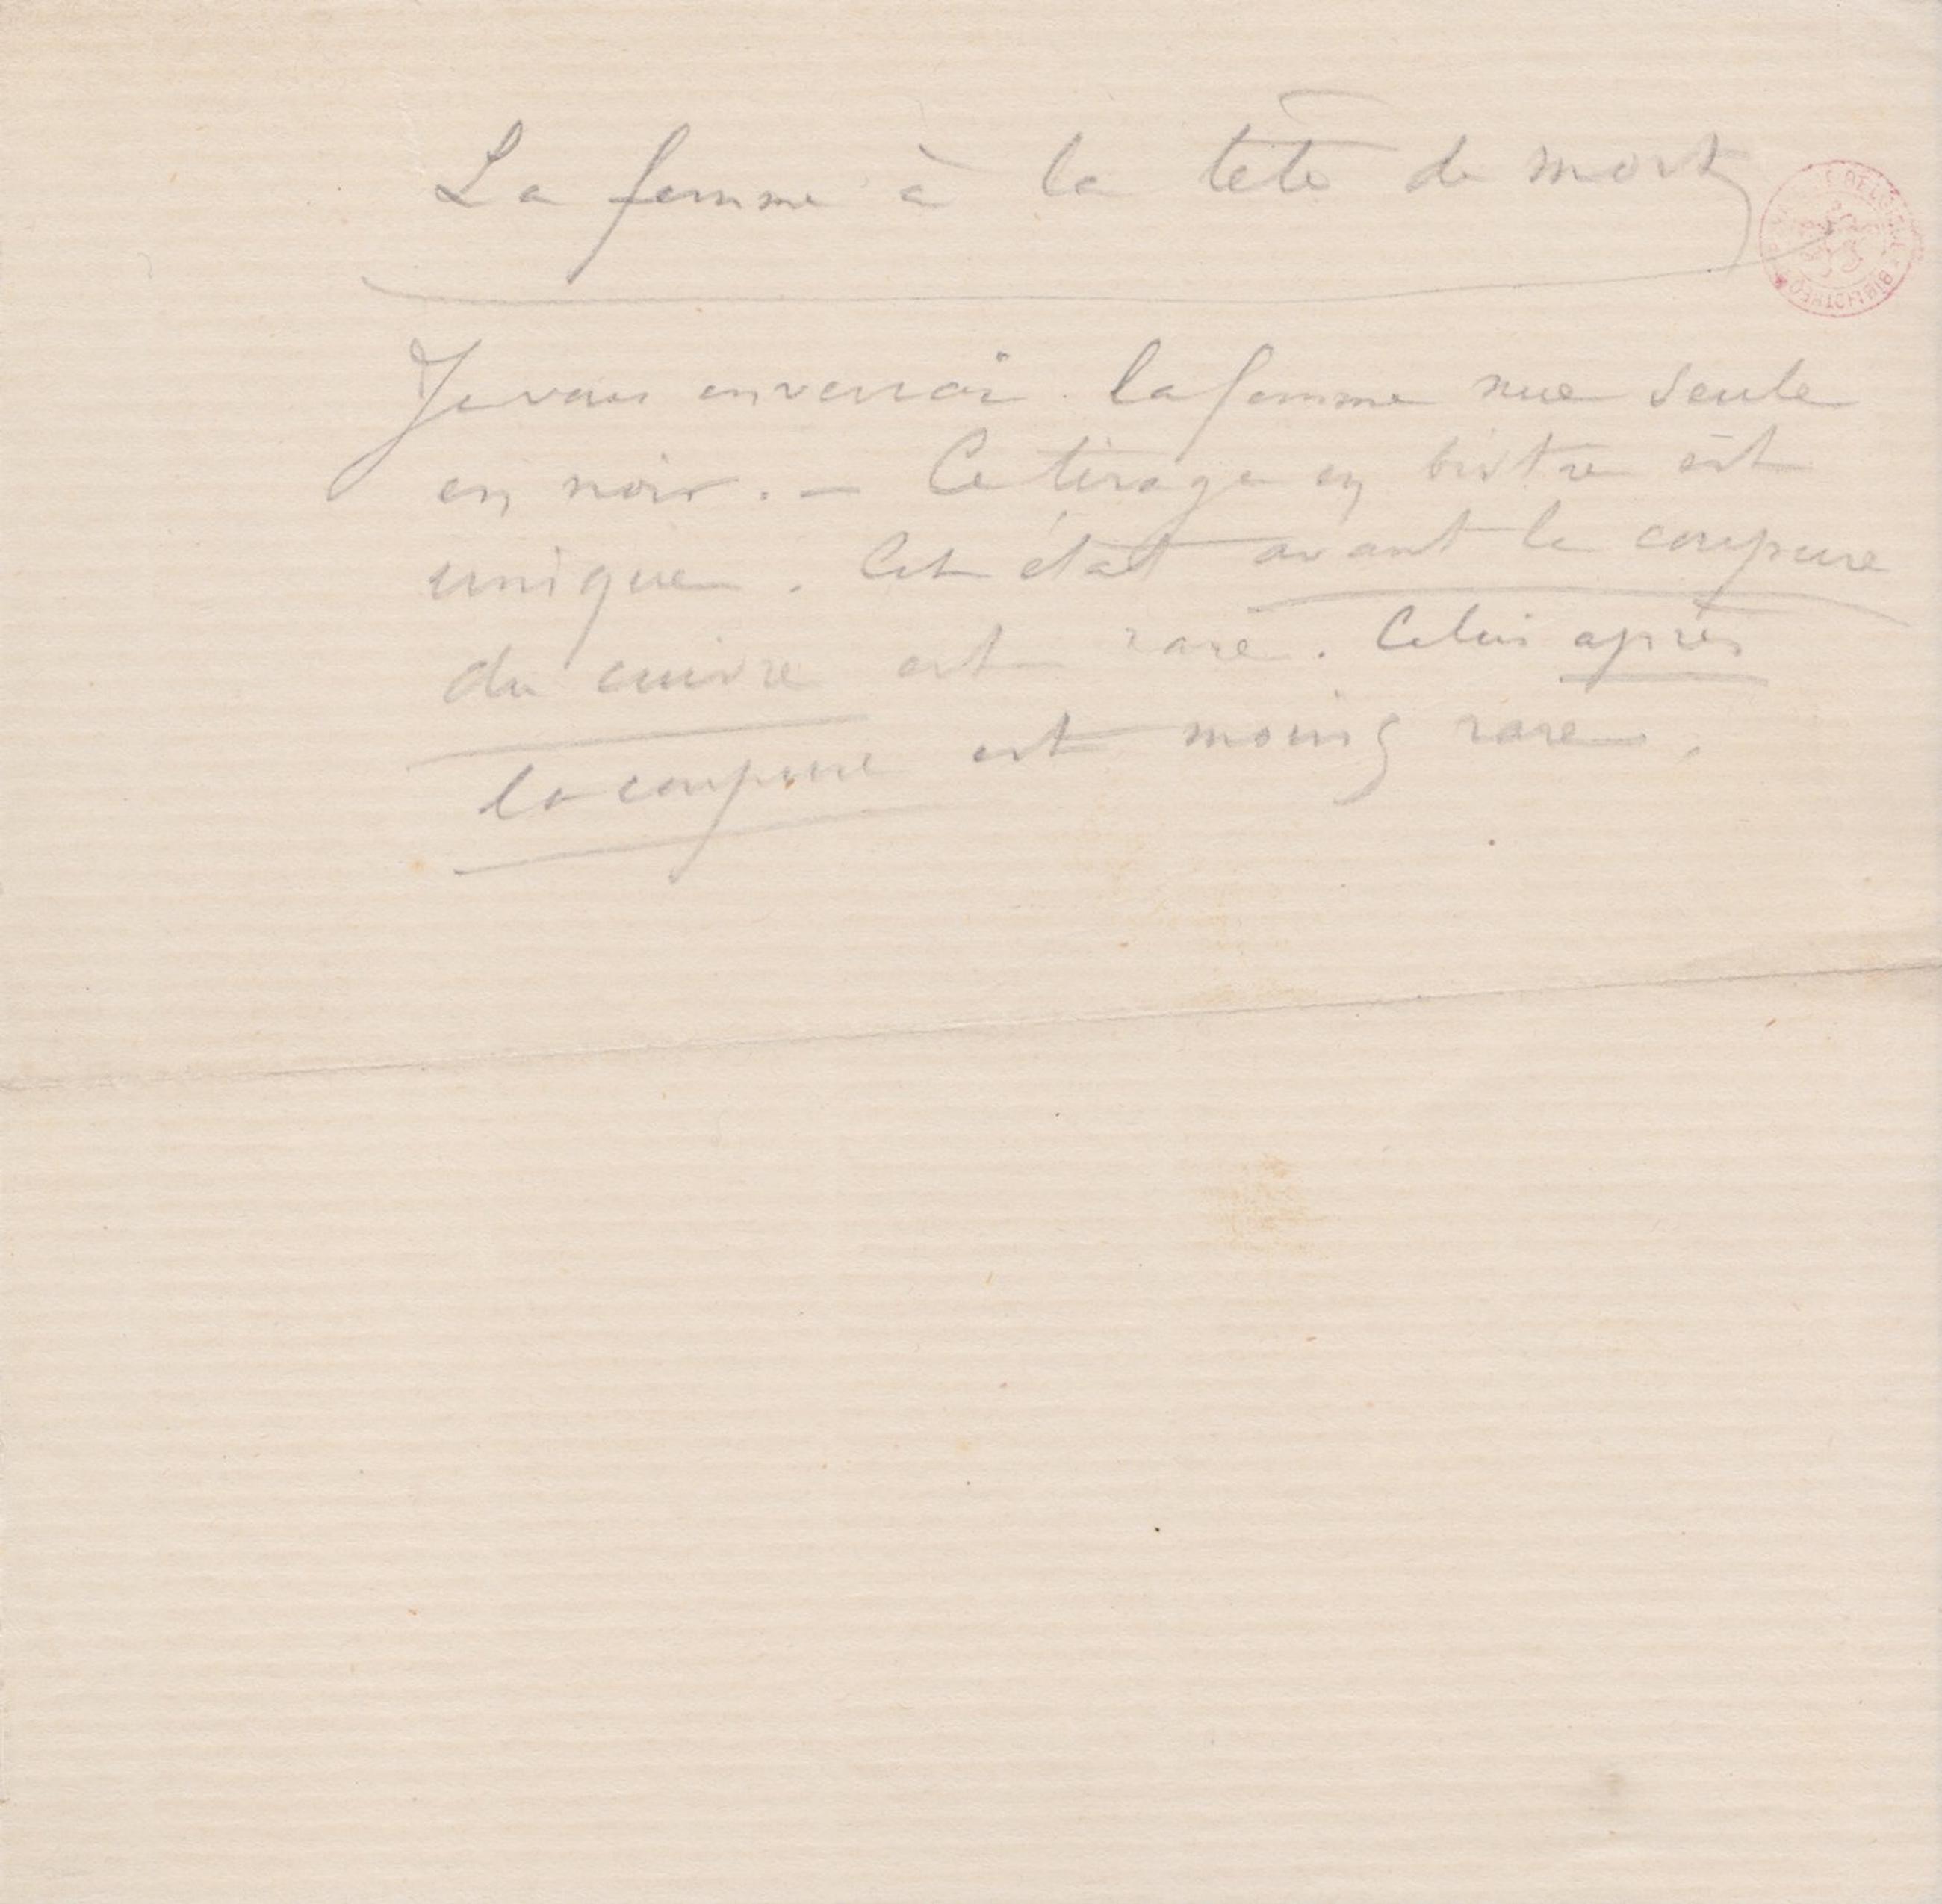 La femme à la tête de mort
Je vous enverrai la femme nue seule
en noir. — Ce tirage en bistre est
unique. Cet état avant la coupure
du cuivre est rare. Celui après
la coupure est moins rare.